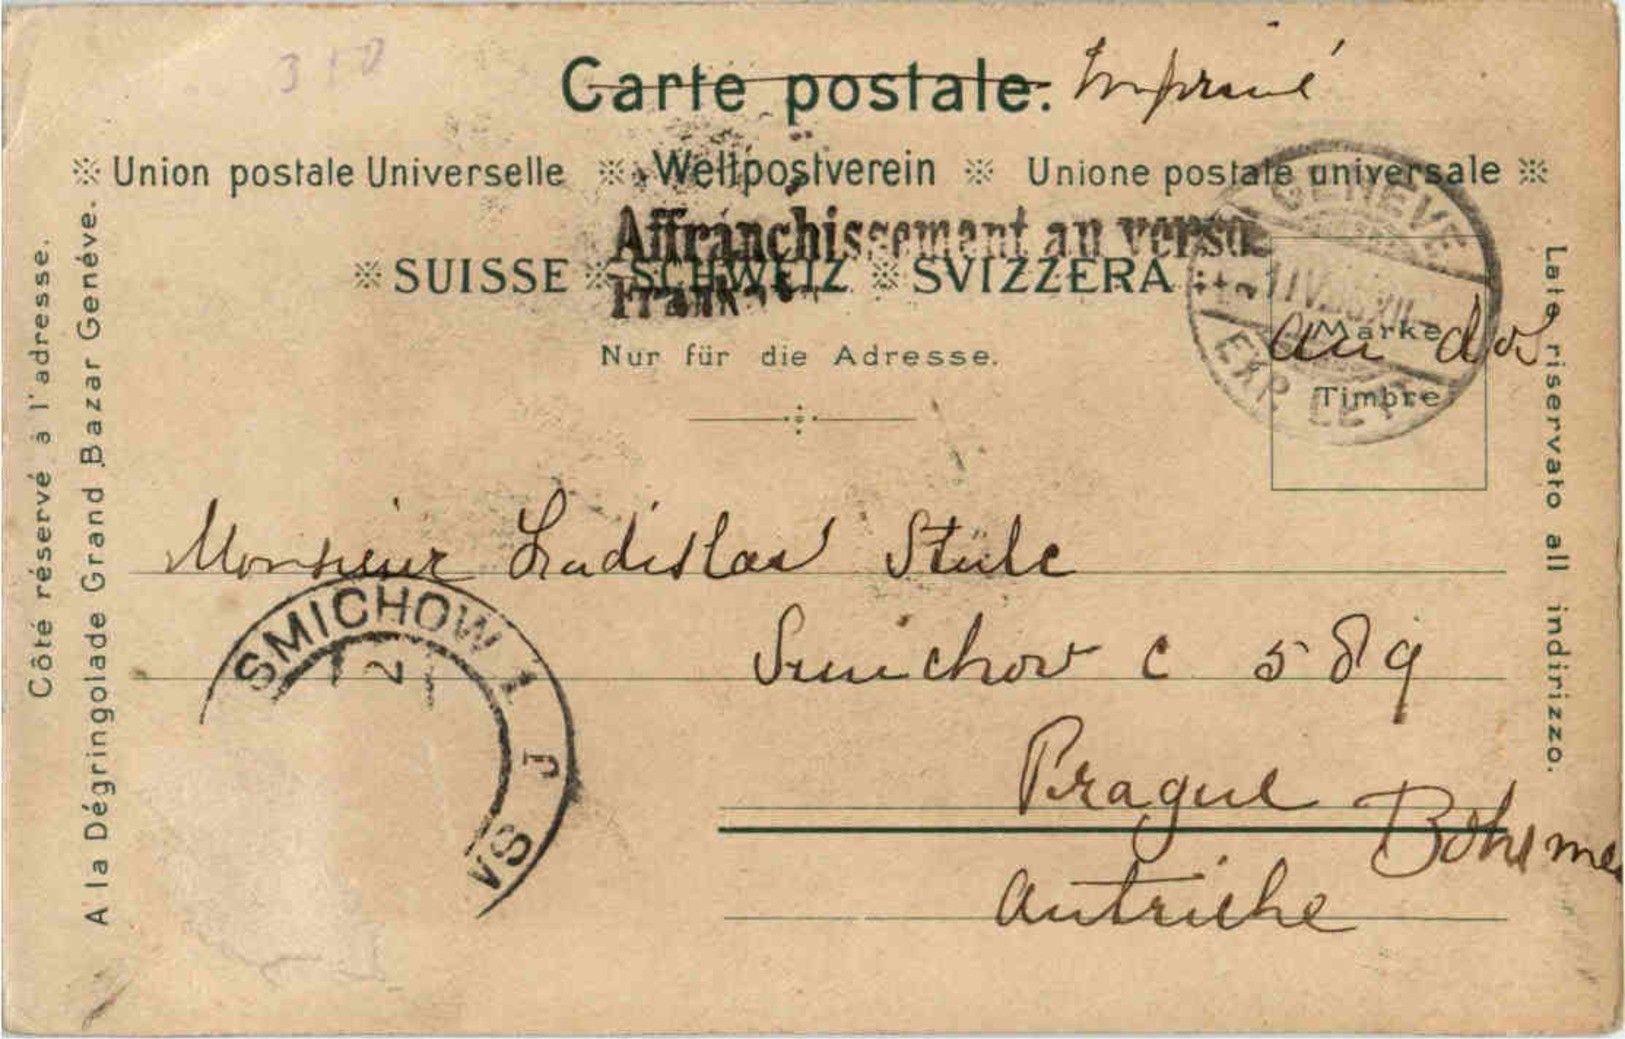 310
Carte postale. Imprimé
※ Union postale Universelle ※ Weltpostverein ※ Unione postale universale ※
Affranchissement au verso
※ SUISSE ※ SCHWEIZ ※ SVIZZERA
Frank
Nur für die Adresse.
GENÈVE
EXP. LET
Marke
au dos
Timbre
Côté réservé à l'adresse.
A la Dégringolade Grand Bazar Genève.
Lato riservato all indirizzo.
Monsieur Ladislas Stülc
SMICHOW 1
2
Smichov c 589
Prague Bohême
Autriche